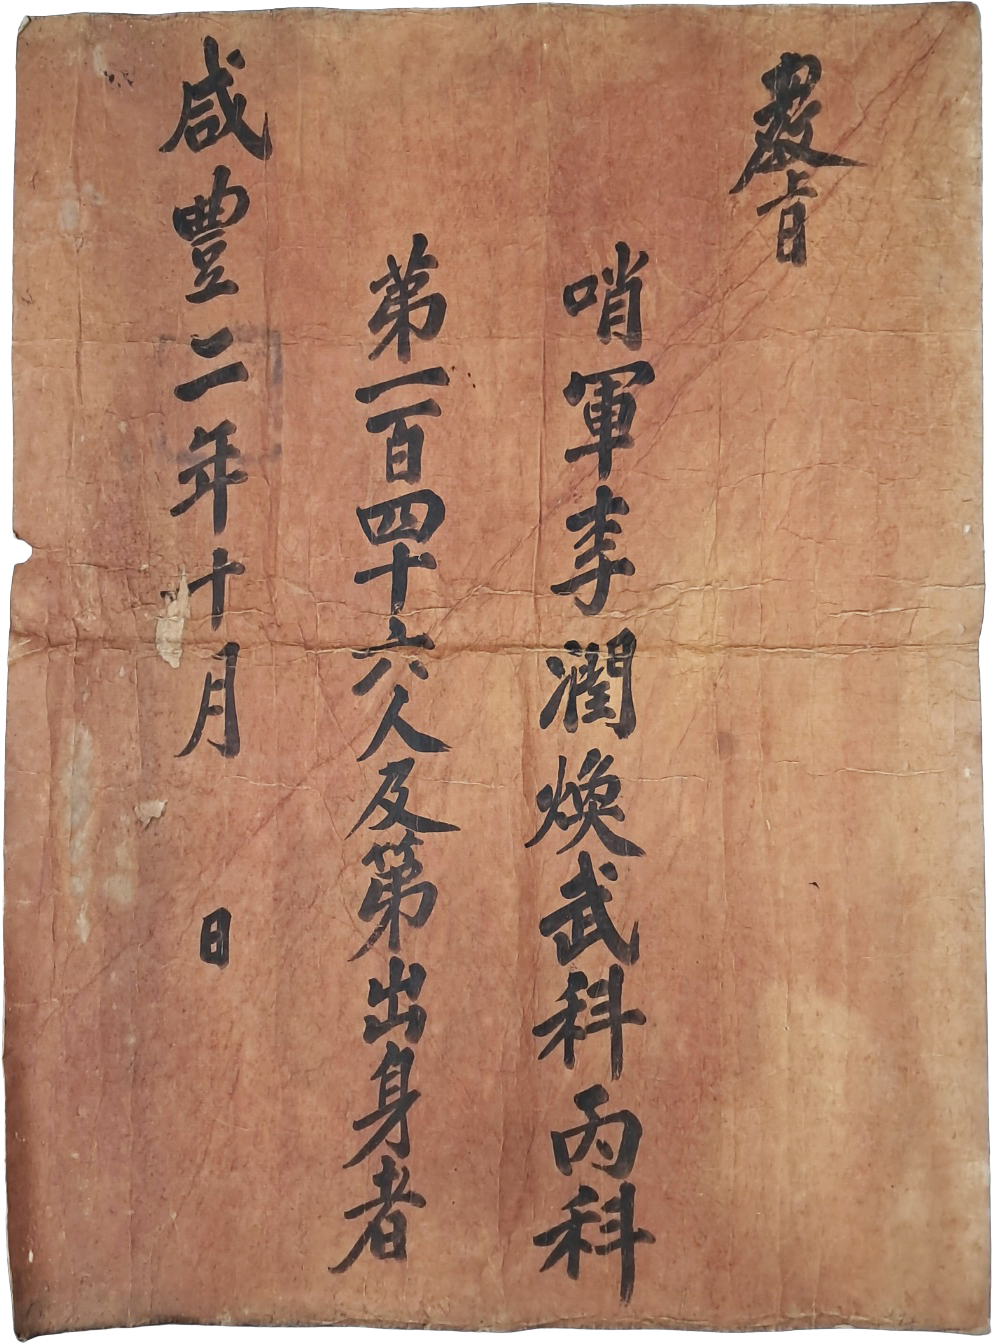 敎旨
哨軍李潤煥武科丙科
第一百四十六人及第出身者
咸豊二年十月 日